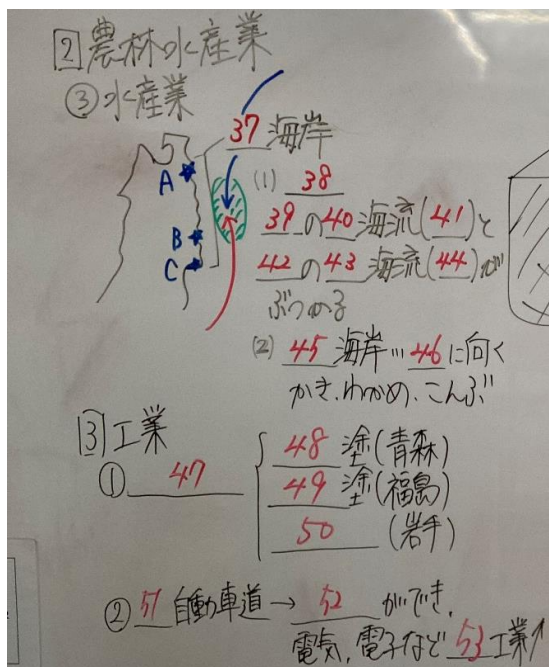 2 農林水産業
③ 水産業
37 海岸
A
B
C
(1) 38
39 の 40 海流(41)と
42 の 43 海流(44)が
ぶつかる
(2) 45 海岸…46 に向く
かき、わかめ、こんぶ
3 工業
① 47
48 塗(青森)
49 塗(福島)
50 (岩手)
② 51 自動車道→ 52 ができ、
電気、電子など 53 工業↑